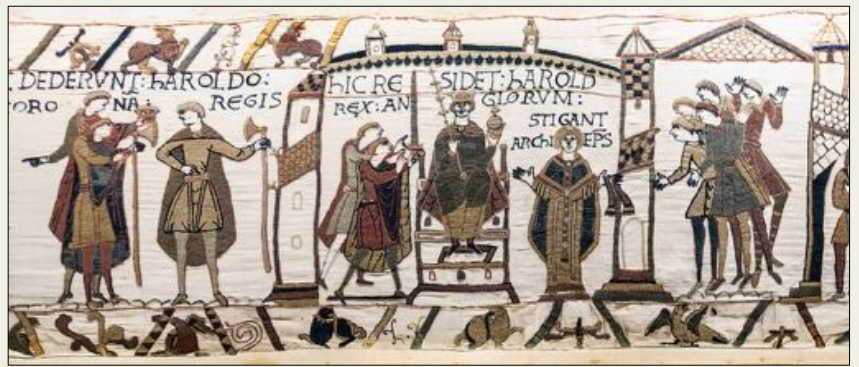 DEDERVNT: hAROLDO:
ORO NA: REGIS
hIC RE SIDET: hAROLD
REX: AN GLORVM:
STIGANT
ARChI EP̄S